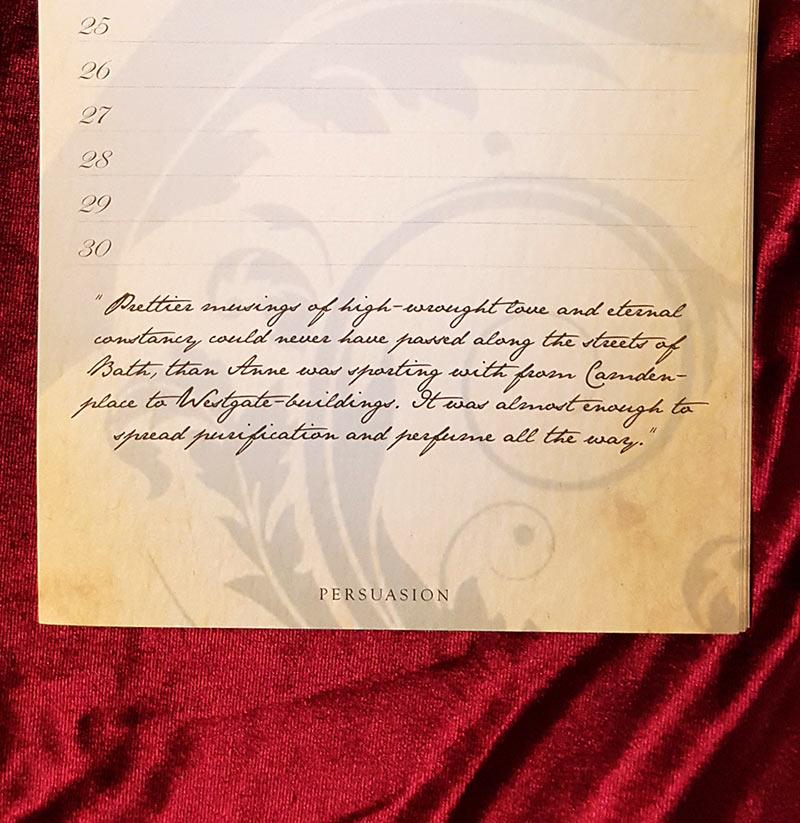 25
26
27
28
29
30
"Prettier musings of high-wrought love and eternal
constancy could never have passed along the streets of
Bath, than Anne was sporting with from Camden-
place to Westgate-buildings. It was almost enough to
spread purification and perfume all the way."
PERSUASION